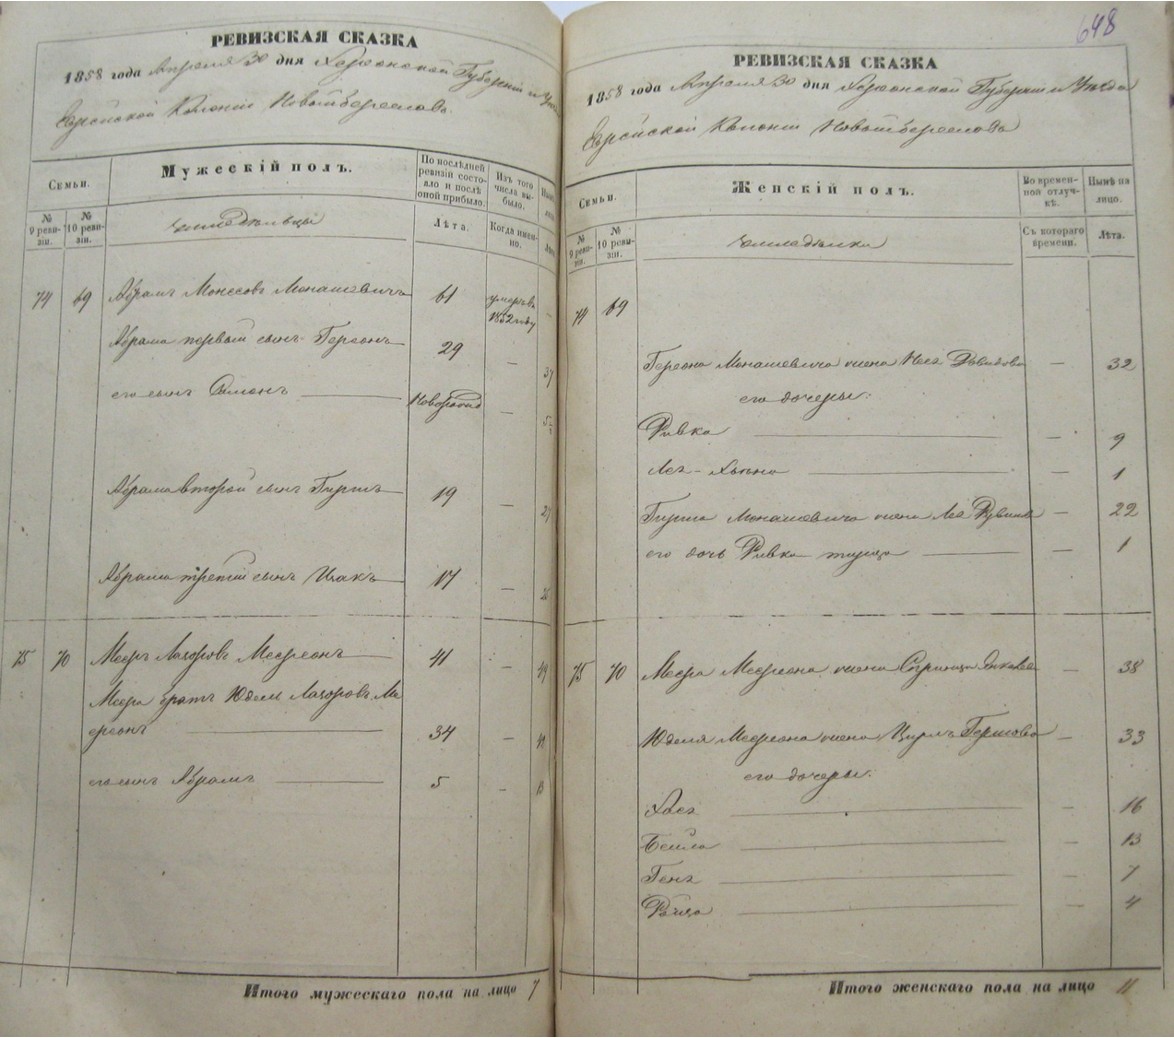 РЕВИЗСКАЯ СКАЗКА
1858 года Апреля 30 дня Херсонской Губерніи и
Еврейской Колоніи Новойбериславъ
Семьи.
Мужескій полъ.
По послѣдней ревизіи состояло и послѣ оной прибыло.
Изъ того числа выбыло.
№ 9 ревизіи.
№ 10 ревизіи.
Лѣта.
Когда именно.
74 69 Абрамъ Монесовъ Монашевичъ 61 умеръ въ 1852 году
Абрама первый сынъ Герсонъ 29 — 37
его сынъ Симонъ Новорожд —
Абрама второй сынъ Гиршъ 19 — 27
Абрама третій сынъ Исакъ 17 — 25
75 70 Мееръ Лазоровъ Меерсонъ 41 - 49
Меера братъ Юдель Лазоровъ Ме
ерсонъ 34 — 42
его сынъ Абрамъ 5 - 13
Итого мужескаго пола на лицо 7
648
РЕВИЗСКАЯ СКАЗКА
1858 года Апреля 30 дня Херсонской Губерніи и Уезда
Еврейской Колоніи Новойбериславъ
Семьи.
Женскій полъ.
Во временной отлучкѣ.
Нынѣ на лицо.
№ 9 ревизіи.
№ 10 ревизіи.
Съ котораго времени.
Лѣта.
74 69
Герсона Монашевича жена Нехе Давидова — 32
его дочеры:
Ривка — 9
Лея-Хьяна — 1
Гирша Монашевича жена Лея — 22
его дочь Ривка — 1
75 70 Меера Меерсона жена Спринца Янкова — 38
Юделя Меерсона жена Цирль Гершова — 33
его дочеры:
Хася — 16
Бейла — 13
Геня — 7
Ройза — 4
Итого женскаго пола на лицо 11